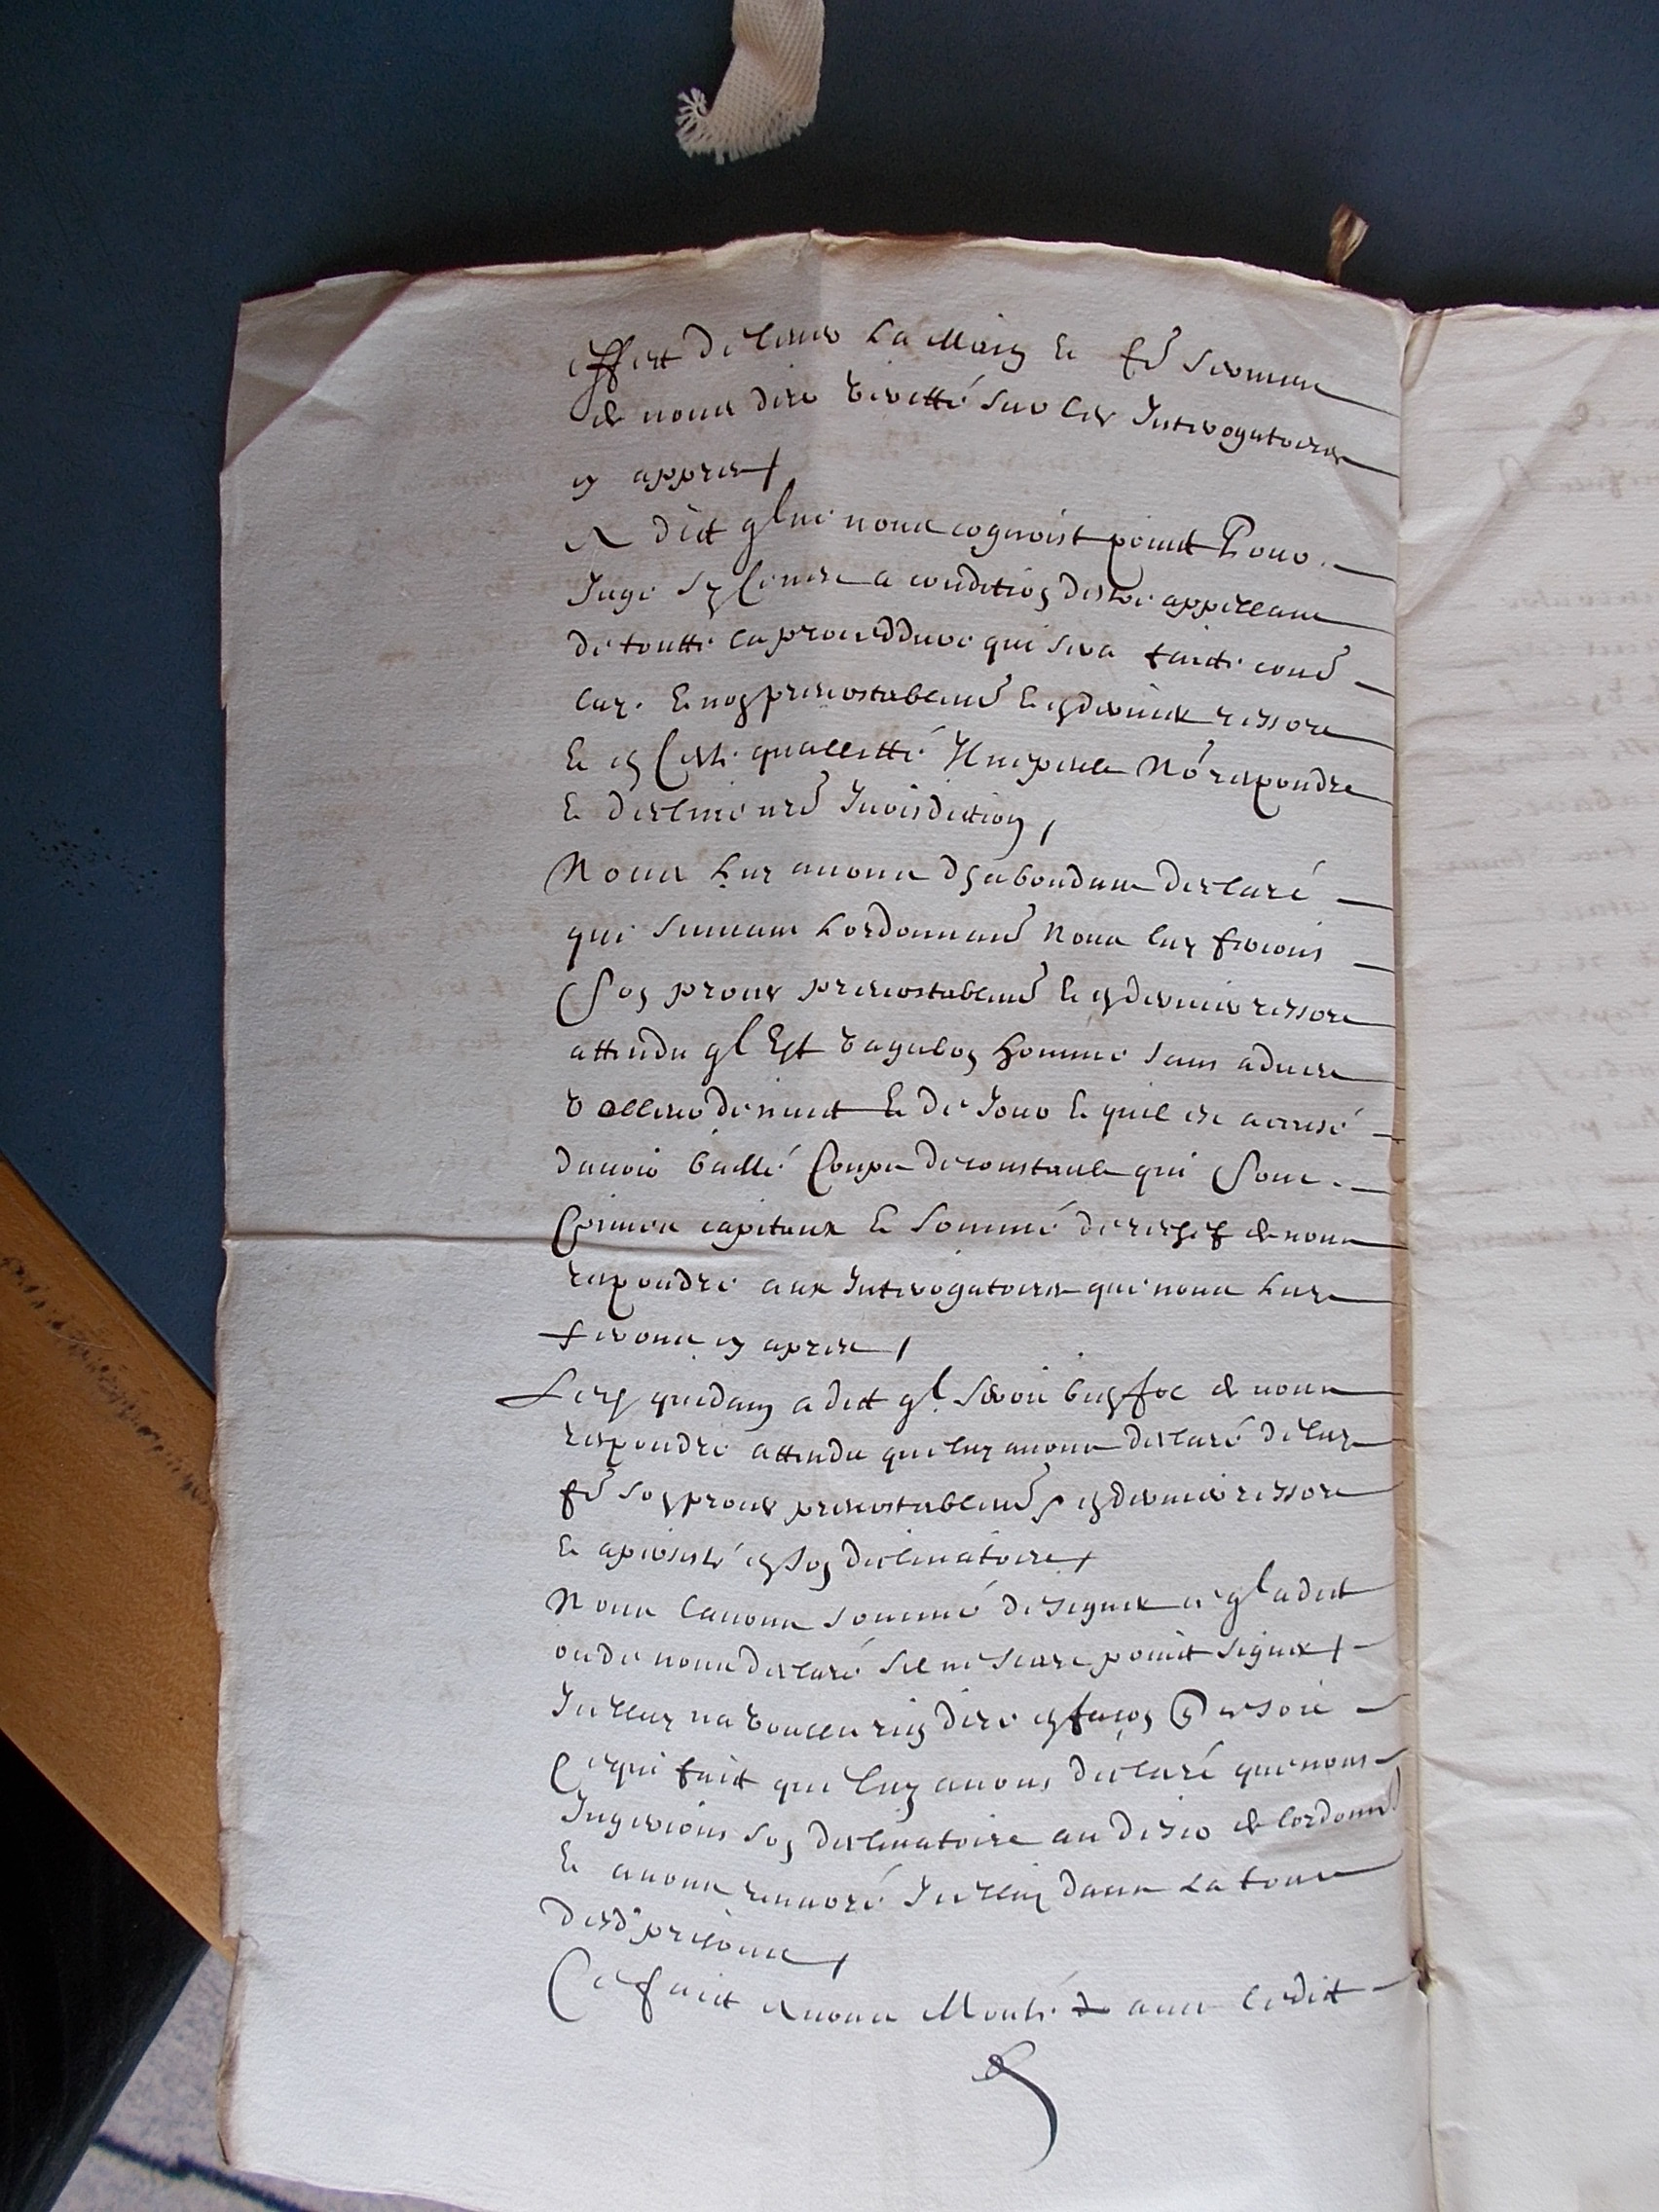 effect de lever la main et fe serment
de nous dire veritté sur les Interrogatoires
cy appres /
A dict ql ne nous cognoist point Pour
Juge sy ce nest a condition destre appellant
de toutte la proceddure qui sera faicte contre
luy. Et non prevostablemt et en dernier ressort
Et en ceste quallitté Il ne peult No respondre
Et decline nre Jurisdiction /
Nous luy avons dhabondant declaré
que suivant lordonnance Nous luy ferions
Son proces prevostablemt et en dernier ressort
attendu ql Est vagabon homme sans adveu
Voller de nuict Et de Jour Et quil est accusé
davoir baillé Coups de cousteaulx qui Sont
Crimes capitaux Et Sommé de rechef de nous
respondre aux Interrogatoires que nous luy
ferons cy apres /
Lecy quidam a dict ql seroit bien fol de nous
respondre attendu que luy avons declaré de luy
fe son proces prevostablemt et en dernier ressort
Et a persisté en son declinatoire /
Nous lavons sommé de signer ce ql a dict
ou de nous declaré sil ne scait point signer /
Icelluy na voullu rien dire en façon qe ce soit
Ce qui faict que luy avons declaré que nous
Jugerions son declinatoire au desir de lordonnce
Et avons renvoié Icelluy dans la tour
desd. prisons /
Ce faict Avons Monté avec ledict